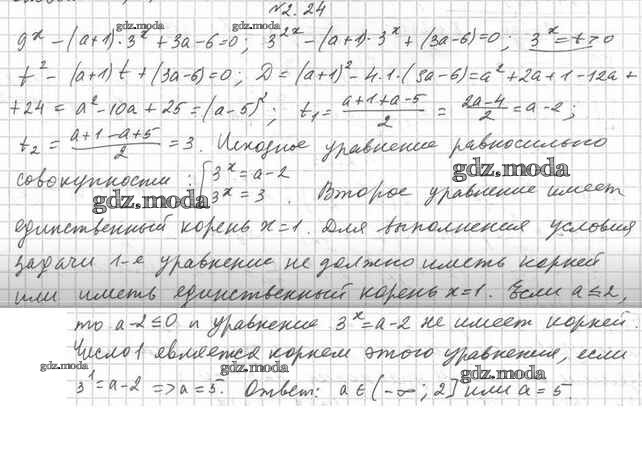 №2.24
9^x - (a+1)·3^x + 3a-6=0; 3^{2x} - (a+1)·3^x + (3a-6)=0; 3^x=t>0
t^2 - (a+1)t + (3a-6)=0; D = (a+1)^2 - 4·1·(3a-6)=a^2+2a+1-12a+
+24 = a^2-10a+25=(a-5)^2; t_1 = \frac{a+1+a-5}{2} = \frac{2a-4}{2} = a-2;
t_2 = \frac{a+1-a+5}{2} = 3. Исходное уравнение равносильно
совокупности: [ 3^x = a-2
3^x = 3 . Второе уравнение имеет
единственный корень x=1. Для выполнения условия
задачи 1-е уравнение не должно иметь корней
или иметь единственный корень x=1. Если a≤2,
то a-2≤0 и уравнение 3^x=a-2 не имеет корней.
Число 1 является корнем этого уравнения, если
3^1=a-2 => a=5. Ответ: a∈(-∞; 2] или a=5.
gdz.moda
gdz.moda
gdz.moda
gdz.moda
gdz.moda
gdz.moda
gdz.moda